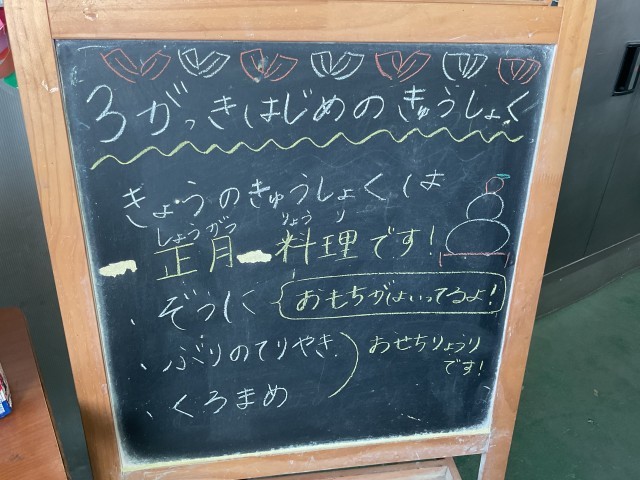 3がっきはじめのきゅうしょく
きょうのきゅうしょくは
しょうがつ りょうり
正月料理です!
、ぞうに おもちがはいってるよ!
、ぶりのてりやき おせちりょうり
です!
、くろまめ